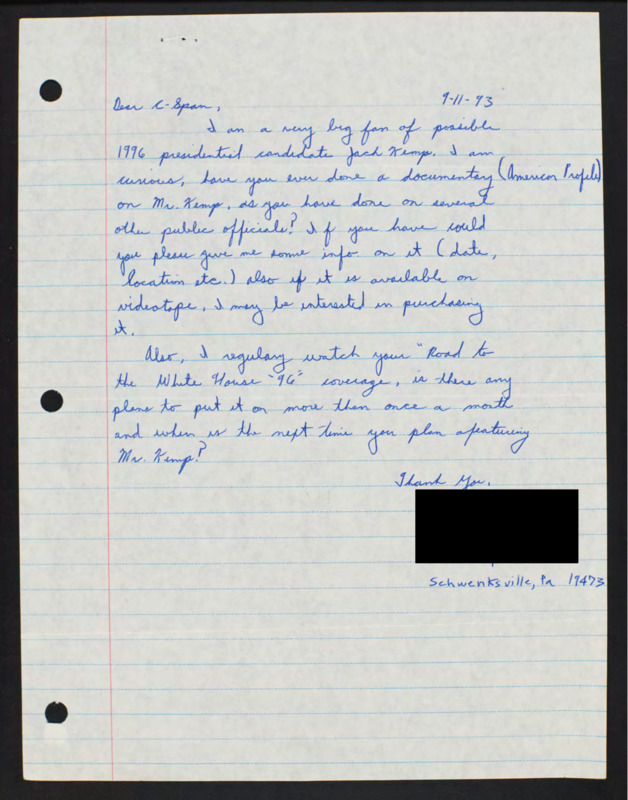 9-11-93
Dear C-Span,
I am a very big fan of possible
1996 presidential candidate Jack Kemp. I am
curious, have you ever done a documentary (American Profile)
on Mr. Kemp, as you have done on several
other public officials? If you have could
you please give me some info on it (date,
location etc.) also if it is available on
videotape, I may be intersted in purchasing
it.
Also, I regulary watch your "Road to
the White House "96" coverage, is there any
plans to put it on more than once a month
and when is the next time you plan featuring
Mr. Kemp?
Thank You,
Schwenksville, Pa 19473